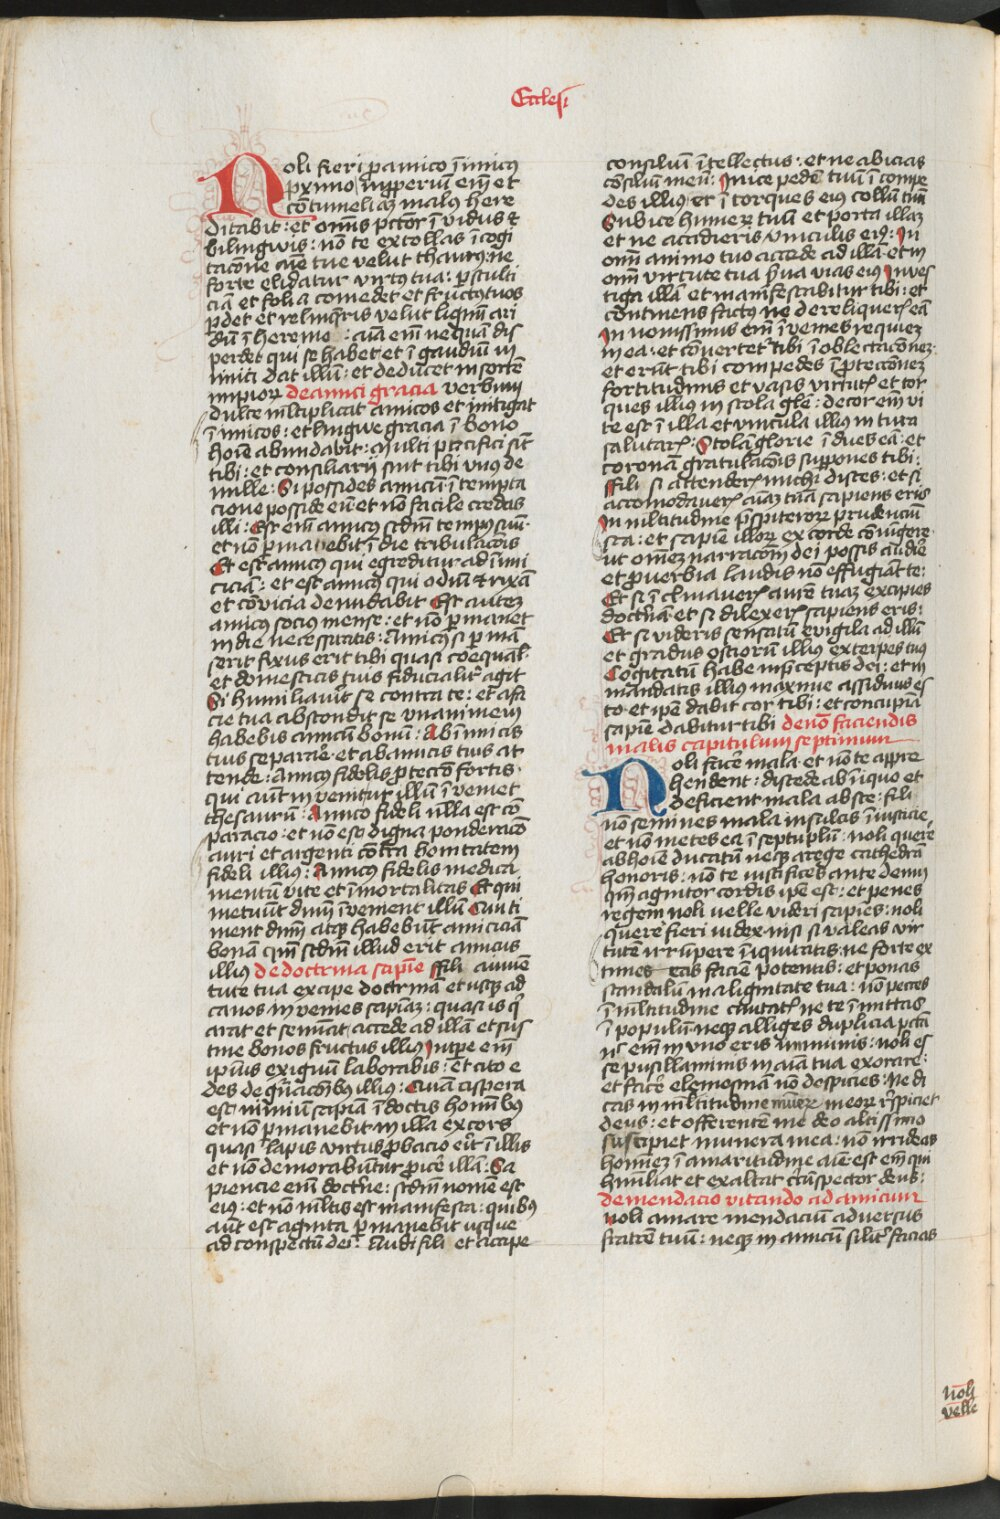 Ecclesi
Noli fieri p amico inimicus
pximo inpperium em et
contumeliam malus here
ditabit : et omnis pctor invidus et
bilinguis : non te extollas in cogi
tacone aie tue velut thaurus : ne
forte elidatur virtus tua : p stulti
ciam et folia comedet et fructus tuos
pdet et relinqris velut lignum ari
dum in heremo : aia em nequam dis
perdet qui se habet et in gaudium in
imici dat illum : et deducet in sortem
impiorum de amici gracia verbum
dulce mltiplicat amicos et mitigat
inimicos : et lingwe gracia in bono
hoie abundabit : Multi pacifici sint
tibi : et consiliarij sint tibi unus de
mille : Si possides amicum in tempta
cione posside eum et non facile credas
illi : Est enim amicus scdm tempus suum ·
et non pmanebit in die tribulacois
Et est amicus qui egreditur ad inimi
ciciam : et est amicus qui odium et rixam
et convicia denudabit Est autem
amicus socius mense : et non pmanet
in die necessitatis : Amicus si pman
serit fixus erit tibi quasi coequal
et domesticis tuis fiducialit agit
Si humiliavit se contra te : et a fa
cie tua abscondit se unanimem
habebis amicum bonum : Ab inimicis
tuis separare · et ab amicis tuis at
tende : Amicus fidelis ptecco fortis ·
qui aut invenit illum invenit
thesaurum : Amico fideli nulla est com
paracio : et non est digna ponderaco
auri et argenti contra bonitatem
fidei illius : Amicus fidelis medica
mentum vite et immortalitas Et qui
metuunt dnm invenient illum Qui ti
ment dnm atque habebunt amiciciam
bonam qm scdm illum erit amicus
illius de doctrina sapie ffili a iuven
tute tua excipe doctrinam et usque ad
canos invenies sapiam : quasi is qui
arat et seminat accede ad illam et sus
tine bonos fructus illius Inope em
ipius exiguum laborabis : Et cito e
des de gnacoibus illius : Quam aspera
est nimium sapiam indoctis hominibus
et non pmanebit in illa excors
quasi lapis virtus pbacio erit in illis
et non demorabuntur picere illam : Sa
piencie em doctrine : scdm nomen est
eius : et non multis est manifesta : quibus
aut est agnita pmanebit usque
ad conspectum dei : Audi fili et accipe
consilium intellectus : et ne abicias
consilium meum : Inice pedem tuum in compe
des illius et in torques eius collum tuum
Subice humerum tuum et porta illam
et ne accidieris vinculis eius : In
omni animo tuo accede ad illam et in
omni virtute tua serva vias eius Inves
tiga illam et manifestabitur tibi : et
continens factus ne derelinqueris eam
In novissimis em invenies requiem
in ea : et convertet tibi in oblectaconem ·
et erunt tibi compedes in ptecconem
fortitudinis et vasis virtutis et tor
ques illius in stola glorie : decor em vi
te est in illa et vincula illius in tura
salutaris : Stolam glorie indues eam : et
coronam gratulacois suppones tibi :
ffili si attenderis michi disces : et si
accomodaveris aiam tuam sapiens eris
In mltitudine presbiterorum prudencium
sta : et sapien illorum ex corde coniungere ·
ut omnem narracoem dei possis audire
et pverbia laudis non effugiant te :
Et si inclinaveris aurem tuam excipies
doctrinam et si dilexeris sapiens eris :
Et si videris sensatum evigila ad illum
et gradus ostiorum illius exterpes tuus
Cogitatum habe in preceptis dei : et in
mandatis illius maxime assiduus es
to et ipse dabit cor tibi : et concupia
sapien dabitur tibi de non faciendis
malis capitulum septimum
Noli facere mala et non te appre
hendent : discede ab iniquo et
deficient mala abs te : fili
non semines mala in sulcis iniusticie
et non metes ea in septuplum : noli querere
ab hoie ducatum neque a rege cathedram
honoris : non te iustifices ante deum
qm agnitor cordis ipe est : et penes
regem noli velle videri sapiens : noli
querere fieri iudex nisi si valeas vir
tutem irrumpere iniquitatis : ne forte ex
times eas faciem potentis : et ponas
scandalum in aligintate tua : non pecces
in mltitudine civitatis ne te inmittas
in populum neque alliges duplicia pccata
nec em in uno eris immunis : noli es
se pusillanimis in aia tua exorare :
et facere elemosinam non despicies : Ne di
cas in mltitudine munerum meorum respiciet
deus : et offerente me deo altissimo
suscipiet munera mea : non irrideas
hominem in amaritudine aie est em qui
humiliat et exaltat circunspector deus :
de mendacio vitando ad amicum
Noli amare mendacium adversus
fratrem tuum : neque in amicum siliter facias
noli
velle